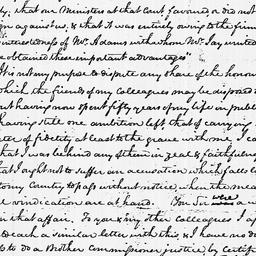 ty; that our Ministers at that Court favoured or did not
gn against us; & that it was entirely owing to the firm
isinterestedness of Mr. Adams with whom Mr. Jay united
we obtained these important advantages"
It is not my purpose to dispute any share of the honour
which the friends of my Colleagues may be disposed
but having now spent fifty years of my life in publ
having still one ambition left that of carrying
cter of fidelity at least to the grave with me, I ca
that I was behind any of them in zeal & faithfulness
that I ought not to suffer an accusation which falls l
to my Country to pass without notice, when the mea
e vindication are at hand. You Sir were a w
in that affair. To you & my other Colleagues I ap
to each a similar letter with this, & I have no d
to do a Brother Commissioner justice, by certif